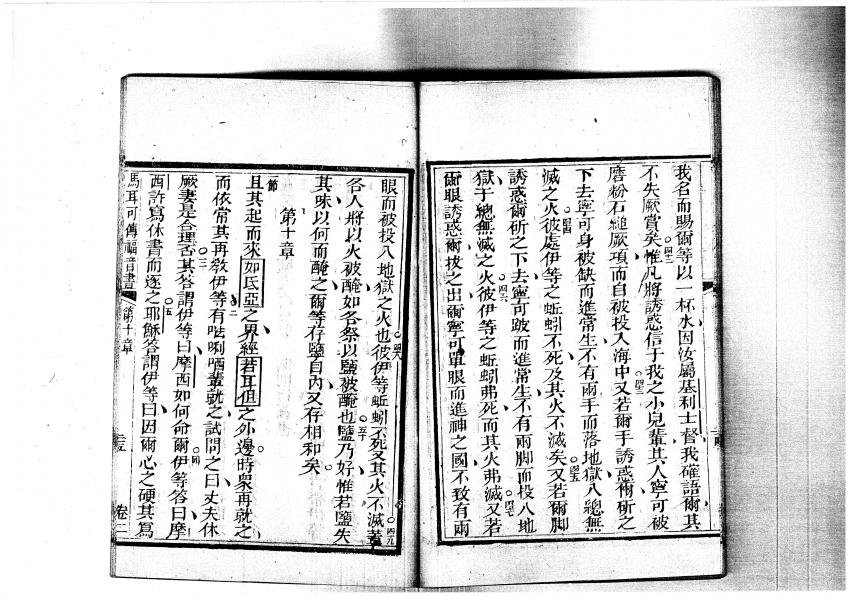 我名而賜爾等以一杯水因汝屬基利士督我確語爾其
不失厥賞矣○四二惟凡將誘惑信于我之小兒輩其人寧可被
磨粉石縋厥項而自被投入海中○四三又若爾手誘惑爾斫之
下去寧可身被缺而進常生不有兩手而落地獄入總無
滅之火○四四彼處伊等之蚯蚓不死及其火不滅矣○四五又若爾脚
誘惑爾斫之下去寧可跛而進常生不有兩脚而投入地
獄于總無滅之火○四六彼伊等之蚯蚓弗死而其火弗滅○四七又若
爾眼誘惑爾拔之出爾寧可單眼而進神之國不致有兩
眼而被投入地獄之火也○四八彼伊等蚯蚓不死又其火不滅○四九蓋
各人將以火被醃如各祭以鹽被醃也○五十鹽乃好惟若鹽失
其味以何而醃之爾等存鹽自內又存相和矣
第十章
一節且其起而來如氐亞之界經若耳但之外邊時衆再就之
而依常其再教伊等○二有𠵽唎㗑輩就之試問之曰丈夫休
厥妻是合理否○三其答謂伊等曰摩西如何命爾○四伊等答曰摩
西許寫休書而逐之○五耶穌答謂伊等曰因爾心之硬其寫
馬耳可傳福音書 第十章 卷二